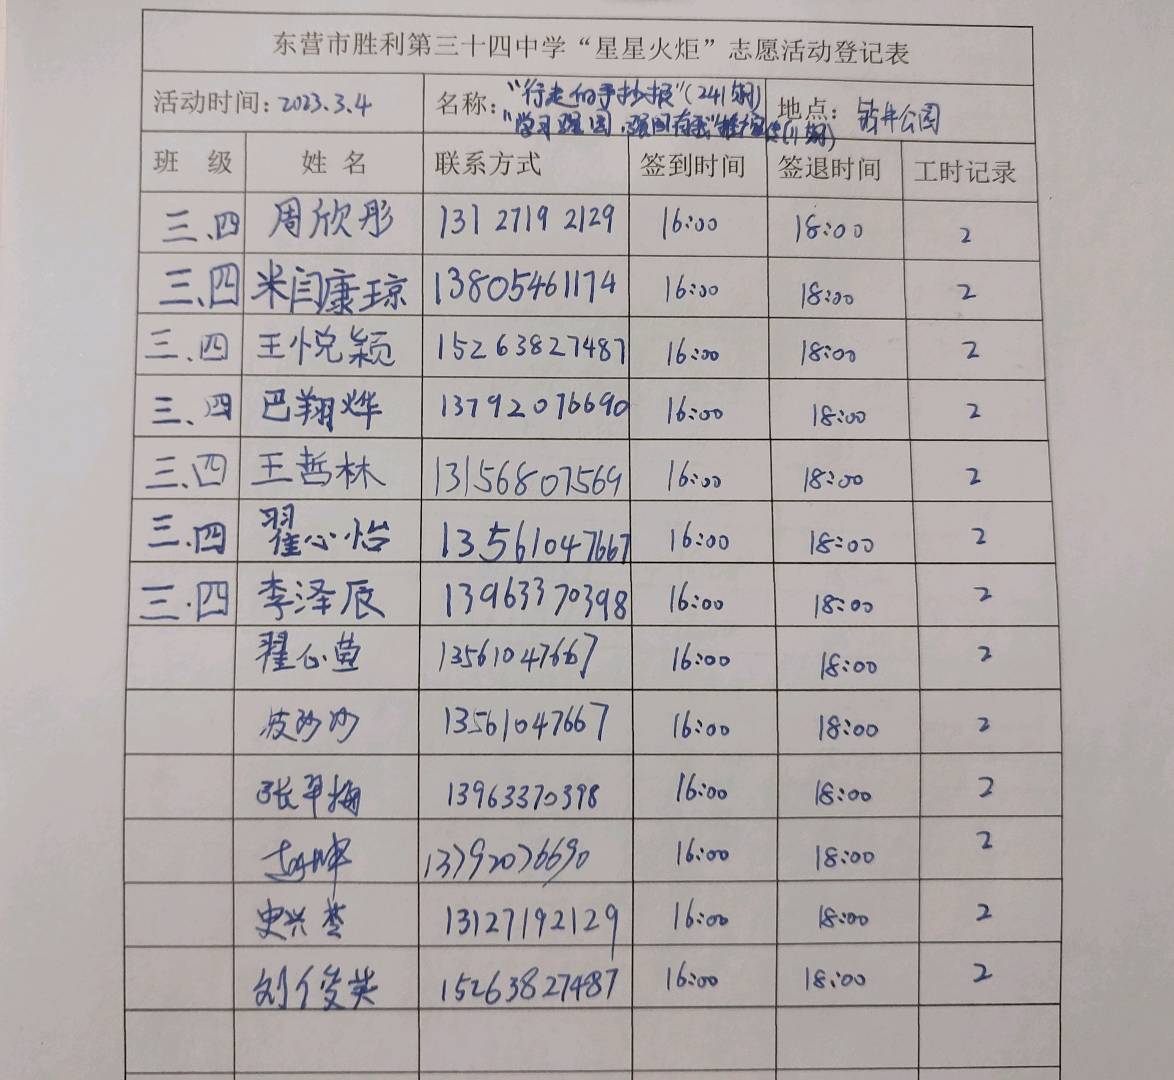 东营市胜利第三十四中学“星星火炬”志愿活动登记表
活动时间:2023.3.4 名称:“行走的手抄报”(241期) 地点:钻井公园
“学习强国,强国有我”推广(11期)
班 级 姓 名 联系方式 签到时间 签退时间 工时记录
三.四 周欣彤 13127192129 16:00 18:00 2
三.四 米闫康琼 13805461174 16:00 18:00 2
三.四 王悦颖 15263827487 16:00 18:00 2
三.四 巴翔烨 13792076690 16:00 18:00 2
三.四 王哲林 13156807569 16:00 18:00 2
三.四 翟心怡 13561047667 16:00 18:00 2
三.四 李泽辰 13963370398 16:00 18:00 2
翟心萱 13561047667 16:00 18:00 2
13561047667 16:00 18:00 2
张翠梅 13963370398 16:00 18:00 2
13792076690 16:00 18:00 2
史兴 13127192129 16:00 18:00 2
刘俊英 15263827487 16:00 18:00 2